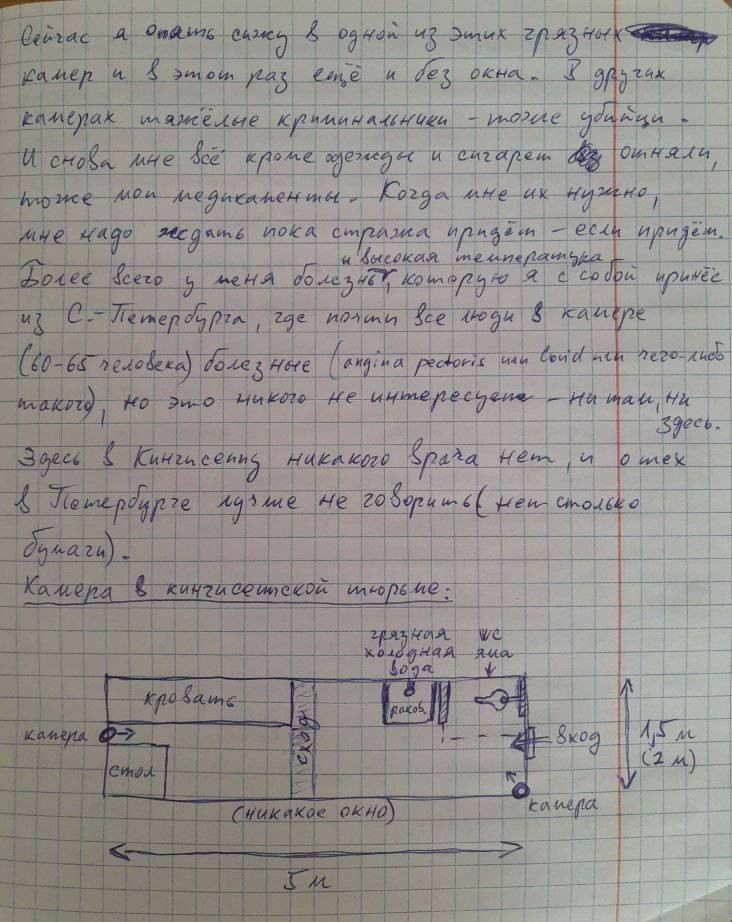 Сейчас я опять сижу в одной из этих грязных
камер и в этот раз ещё и без окна. В других
камерах тяжёлые криминальники – тоже убийци.
И снова мне всё кроме одежды и сигарет отняли,
тоже мои медикаменты. Когда мне их нужно,
мне надо ждать пока стража придёт – если придёт.
и высокая температура
Более всего у меня болезнь, которую я с собой принёс
из С.-Петербурга, где почти все люди в камере
(60-65 человека) болезные (angina pectoris или Covid или чего-либо
такого), но это никого не интересует – ни там, ни
здесь.
Здесь в Кингисепп никакого врача нет, и о тех
в Петербурге лучше не говорить (нет столько
бумаги).
Камера в кингисепской тюрьме:
грязная
холодная
вода
WC
яма
кровать
раков.
сход
камера
стол
вход
1,5 м
(2 м)
(никакое окно)
камера
5 м